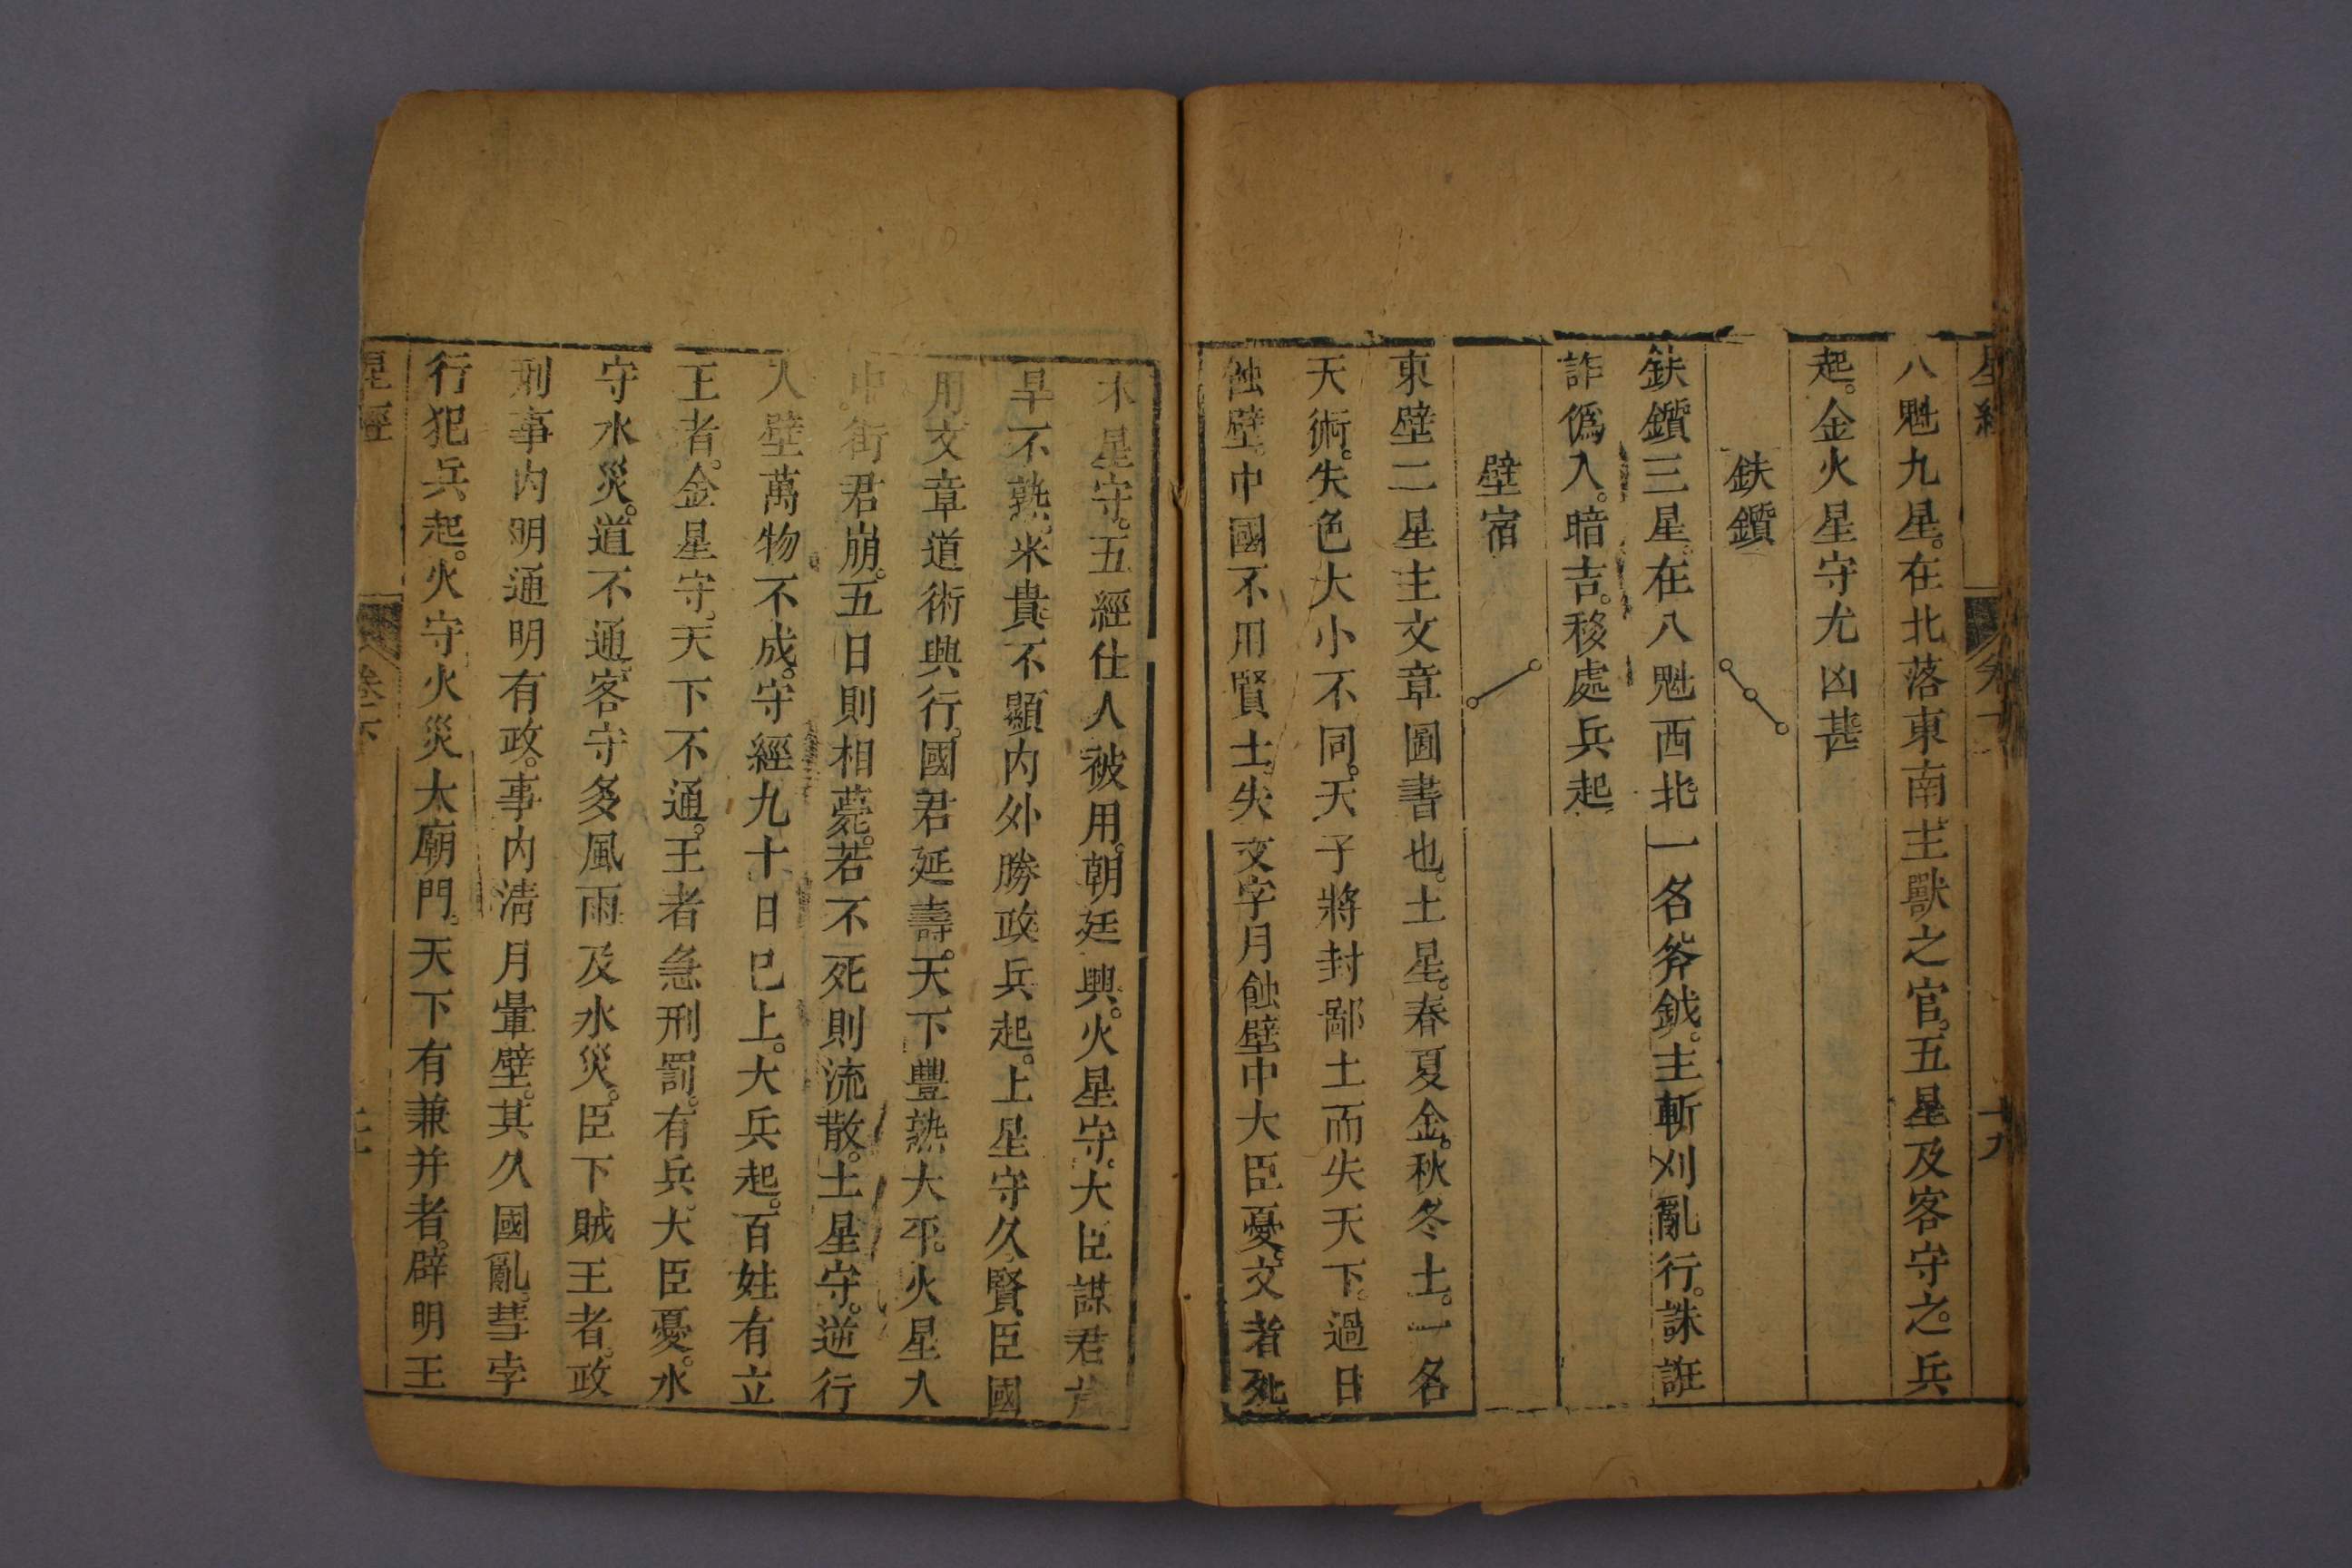 星經
八魁九星。在北落東南。主獸之官。五星及客守之。兵
起。金火星守尤凶甚
鈇鑕
鈇鑕三星。在八魁西北一名斧鉞。主斬刈亂行。誅誑
詐偽人。暗吉。移處兵起
壁宿
東壁二星主文章圖書也。土星。春夏金。秋冬土。一名
天術。失色大小不同。天子將封鄙土而失天下。過日
蝕壁。中國不用賢士。失文字月蝕壁中大臣憂。文者死
木星守。五經仕人被用。朝廷興。火星守。大臣謀君
旱不熟。米貴不顯內外勝政兵起。上星守久賢臣國
用文章道術興行。國君延壽。天下豐熟大平。火星入
中。街君崩。五日則相薨。若不死則流散。土星守。逆行
人壁萬物不成。守經九十日已上。大兵起。百姓有立
王者。金星守。天下不通。王者急刑罰。有兵。大臣憂。水
守水災。道不通。客守多風雨及水災。臣下賊王者。政
刑事內明通明有政。事內清月暈壁。其久國亂。彗孛
行犯兵起。火守火災太廟門。天下有兼并者。辟明王
星經